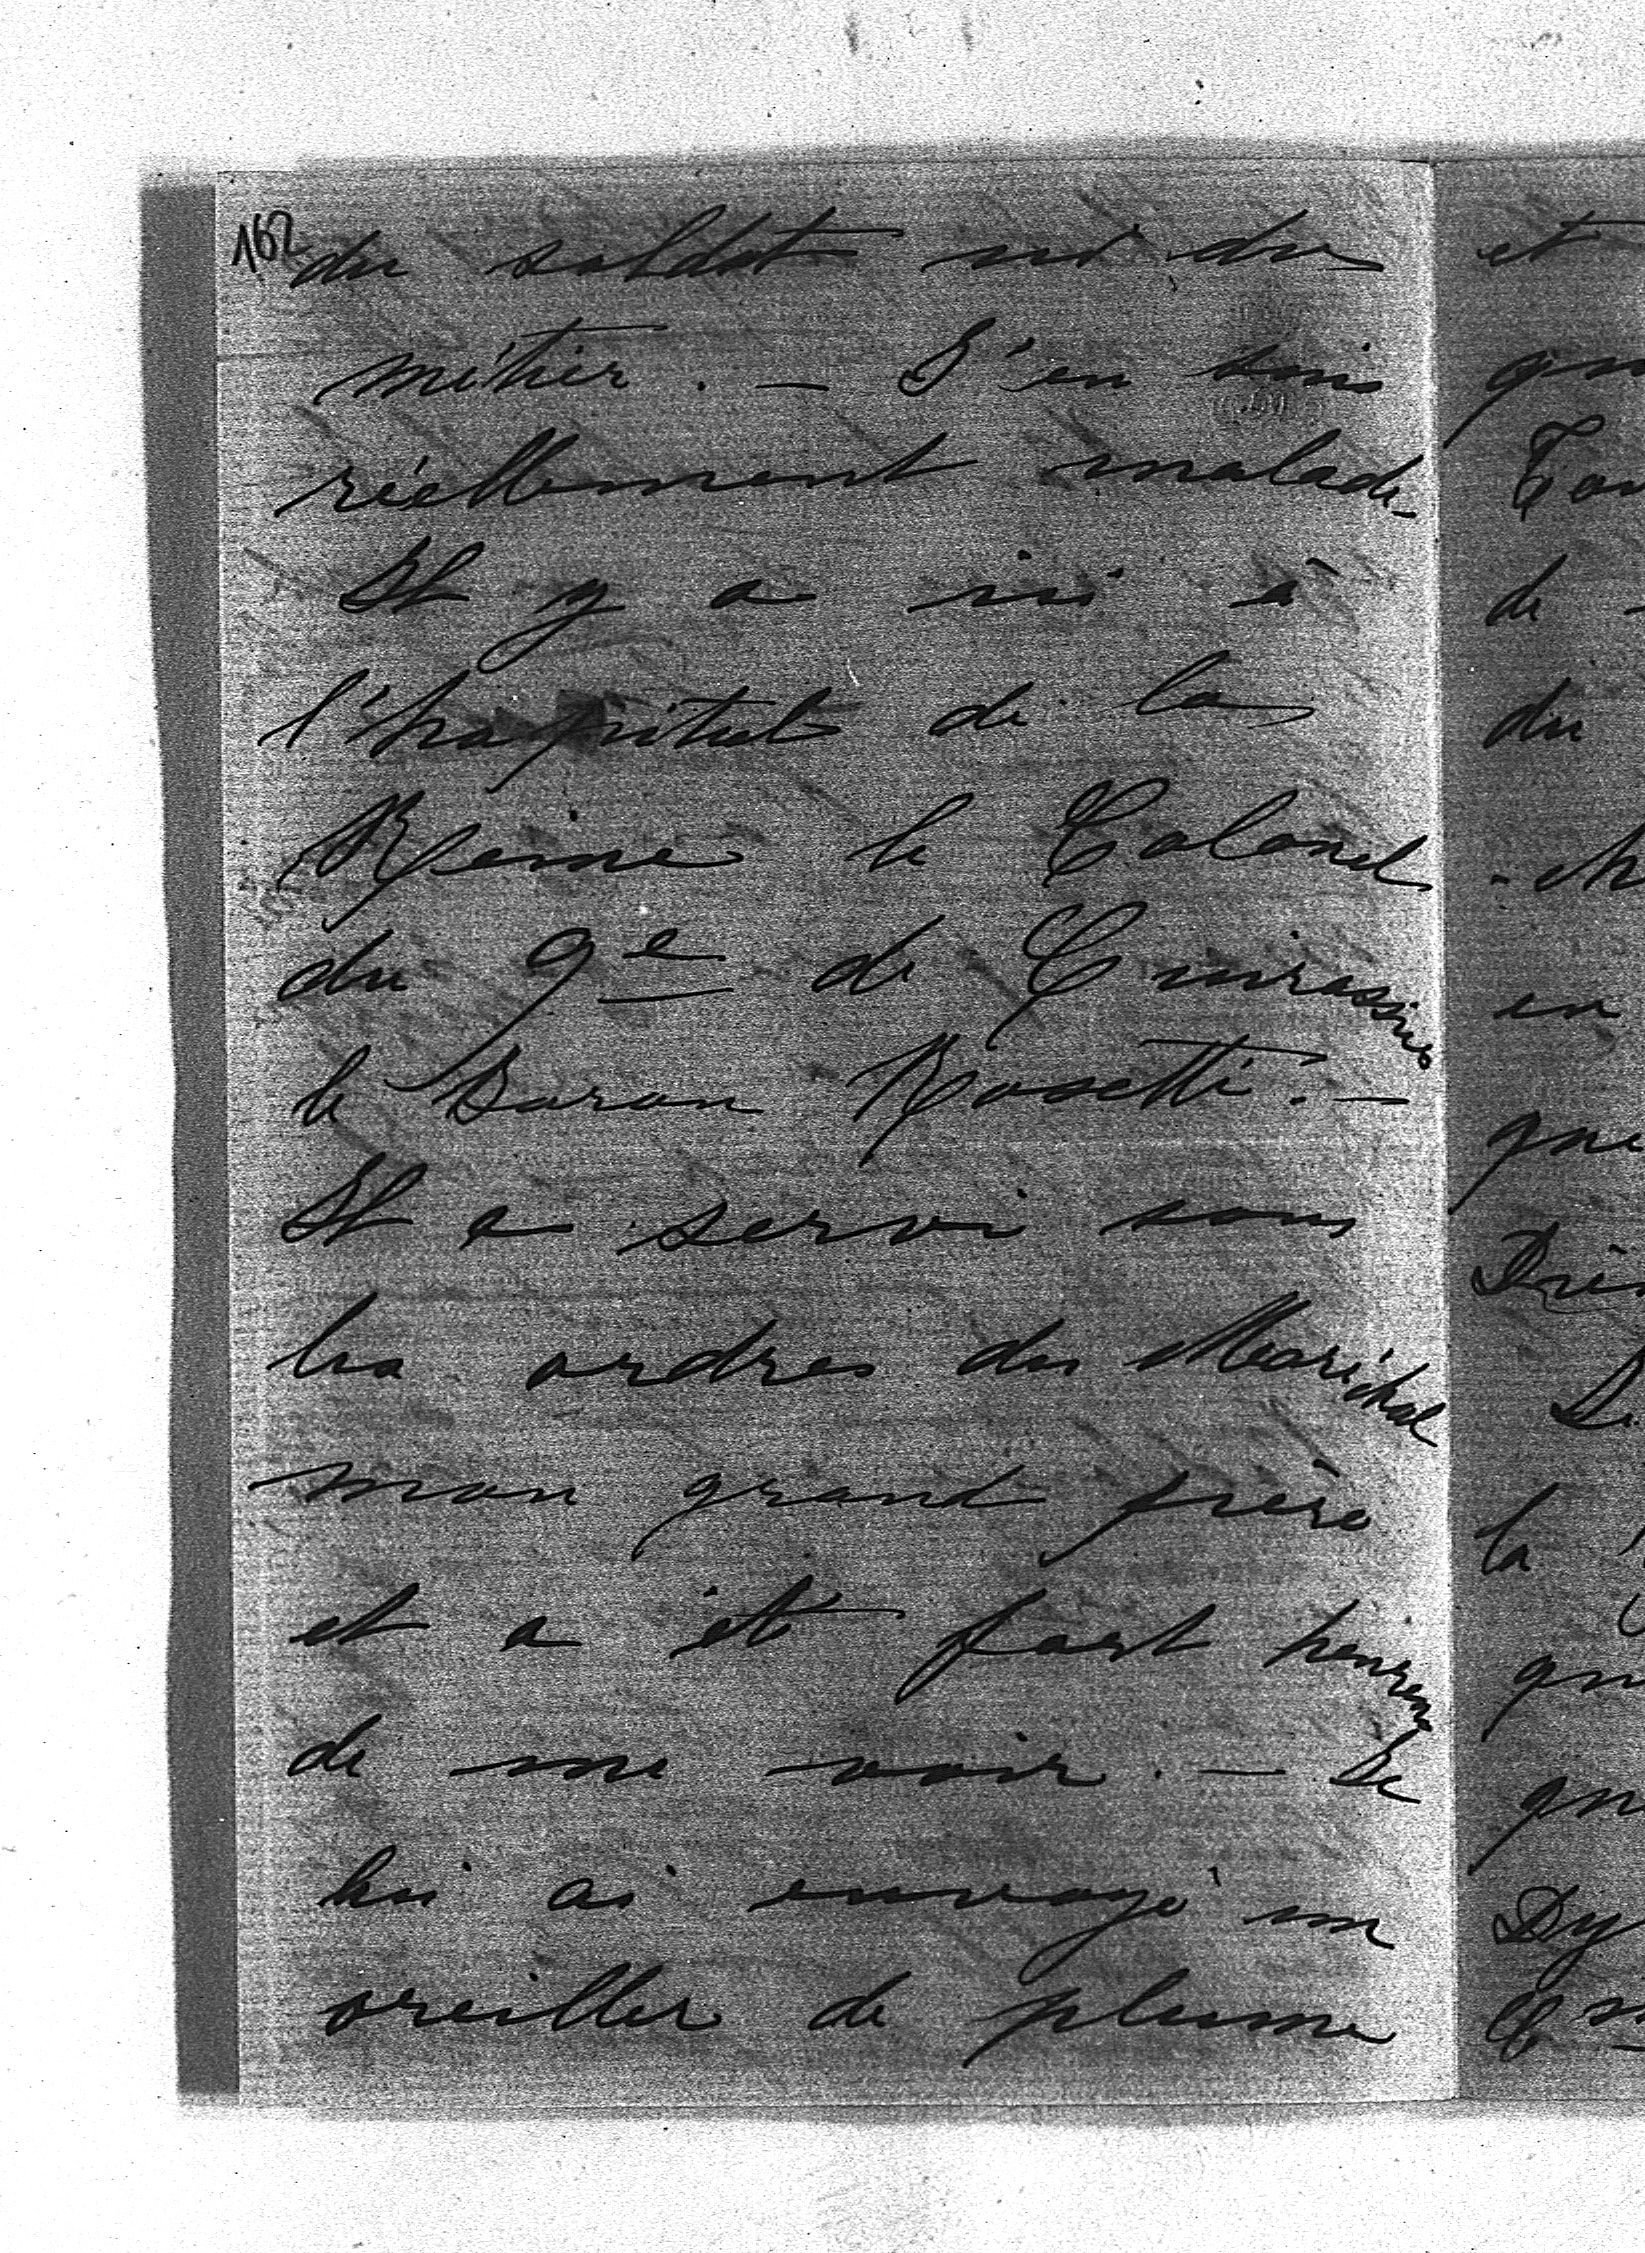 162
du soldat ni du
métier. – J'en suis
réellement malade –
Il y a ici à
l'hopital de la
Reine le Colonel
du 9e de Cuirassiers
le Baron Rosetti. –
Il a servi sous
les ordres du Maréchal
mon grand père
et a été fort heureux
de me voir. – Je
lui ai envoyé un
oreiller de plume
et
de
du
en
la